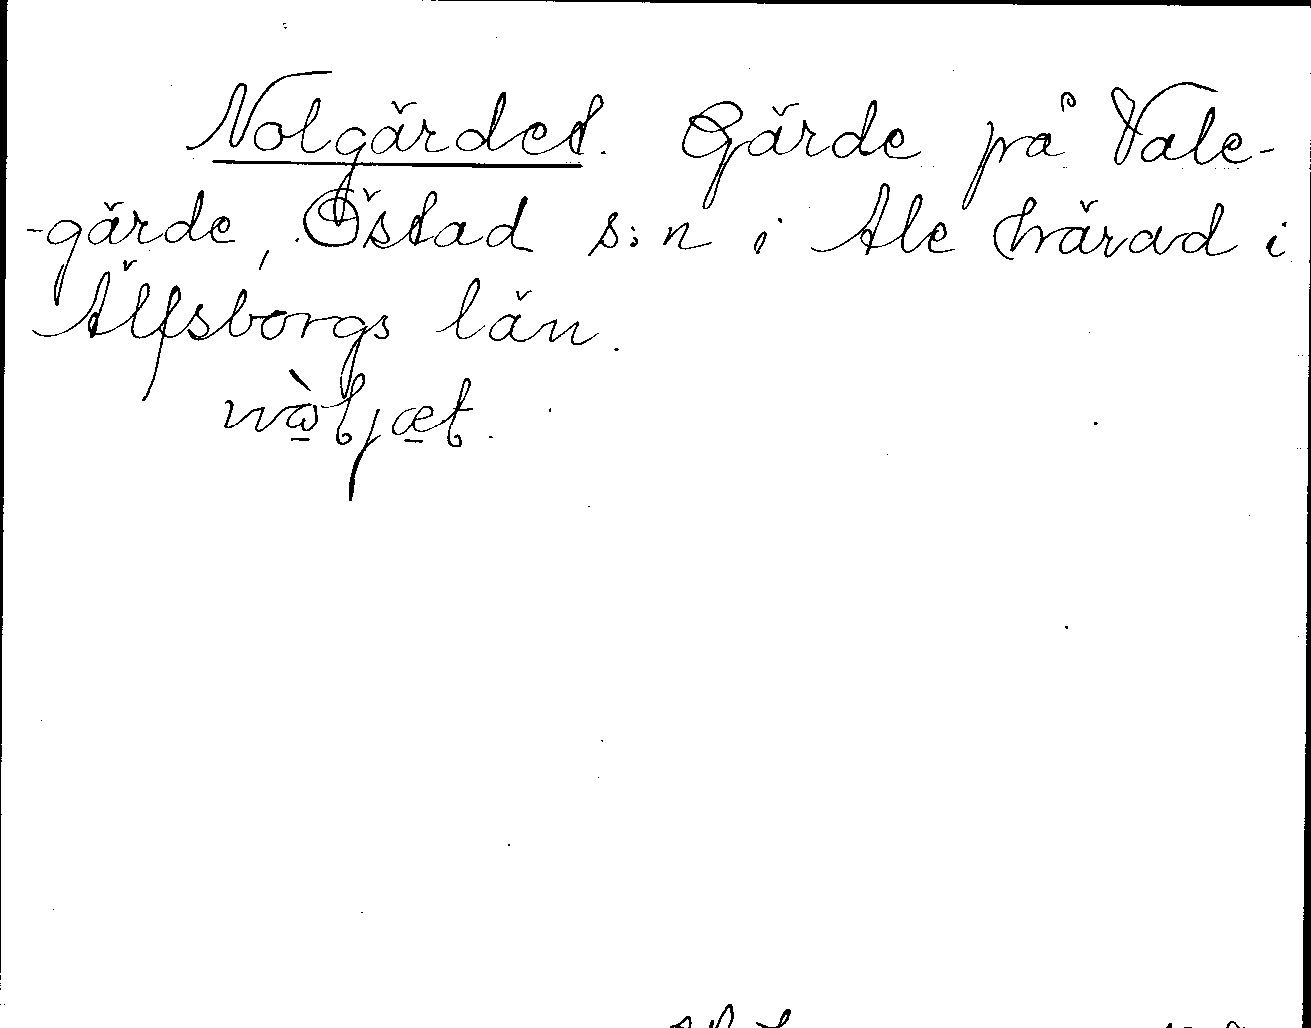 Nolgärdet. Gärde på Vale-
-gärde, Östad s:n i Ale härad i
Älfsborgs län.